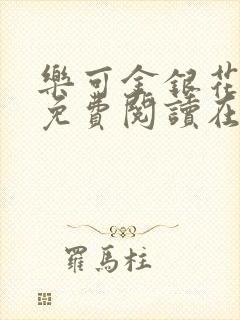 樂可金銀花
免費閱讀在
羅馬柱